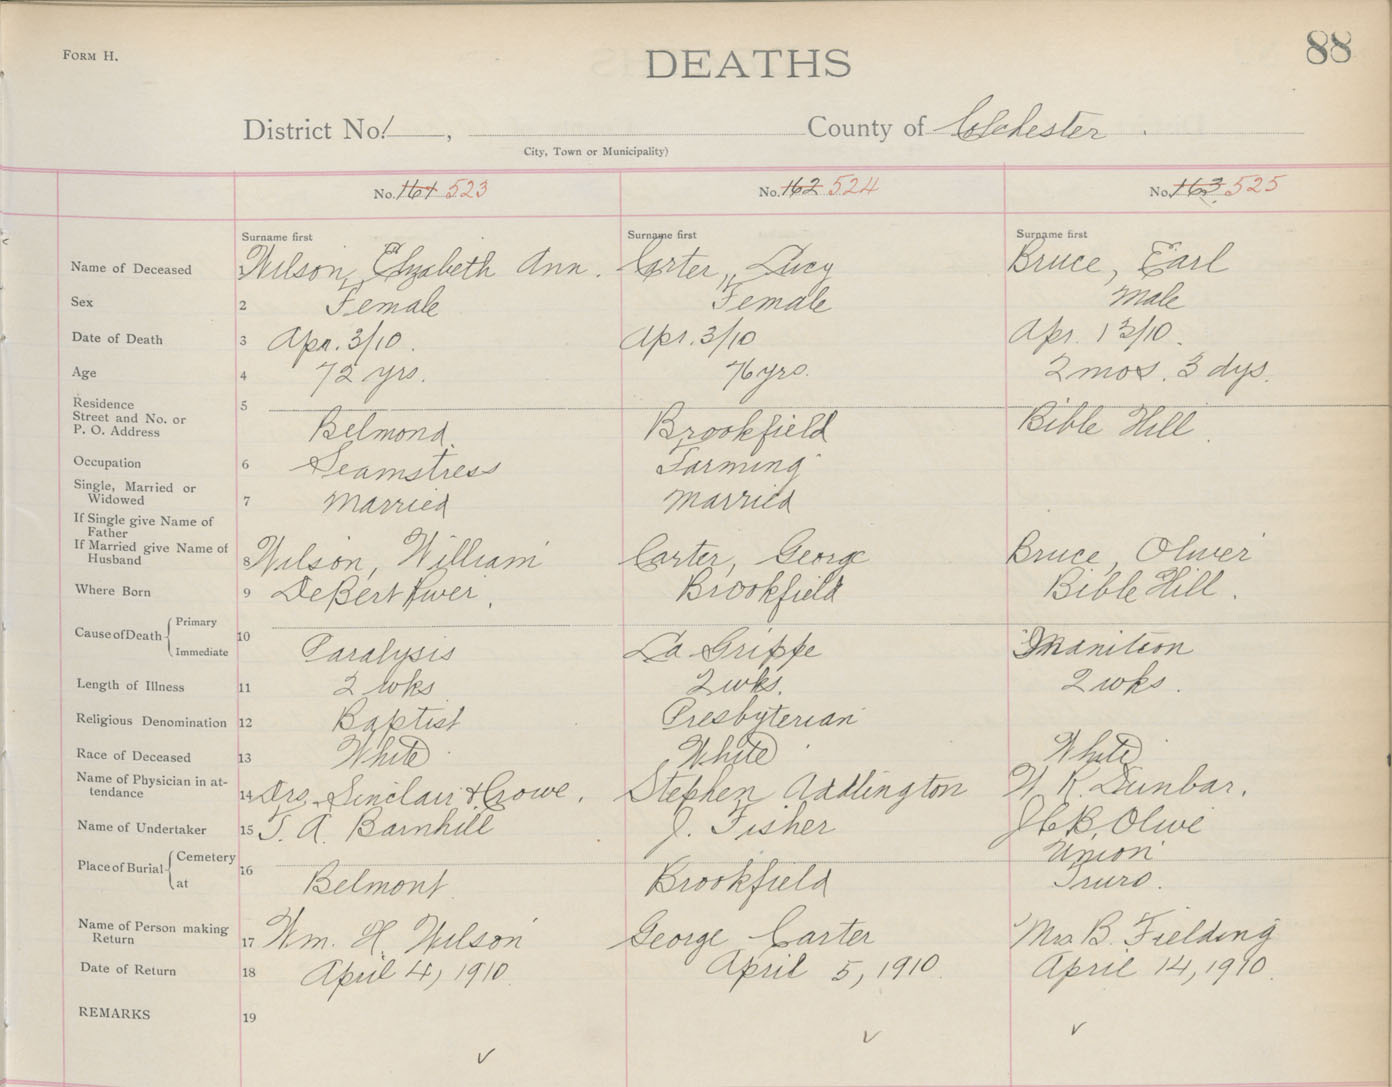 FORM H.
88
DEATHS
District No. 1, County of Colchester.
City, Town or Municipality)
No. 161 523 No. 162 524 No. 163 525
Surname first Surname first Surname first
Name of Deceased 1 Wilson, Elizabeth Ann. Carter, Lucy Bruce, Earl
Sex 2 Female Female Male
Date of Death 3 Apr. 3/10. Apr. 3/10 Apr. 13/10.
Age 4 72 yrs. 76 yrs. 2 mos. 3 dys.
Residence 5
Street and No. or
P. O. Address Belmond. Brookfield Bible Hill.
Occupation 6 Seamstress Farming
Single, Married or
Widowed 7 Married Married
If Single give Name of
Father
If Married give Name of
Husband 8 Wilson, William Carter, George Bruce, Oliver
Where Born 9 DeBert River. Brookfield Bible Hill.
Cause of Death Primary 10
Immediate Paralysis La Grippe Inanition
Length of Illness 11 2 wks 2 wks. 2 wks.
Religious Denomination 12 Baptist Presbyterian
Race of Deceased 13 White White White
Name of Physician in at-
tendance 14 Drs. Sinclair & Crowe. Stephen Addlington W. R. Dunbar.
Name of Undertaker 15 T. A. Barnhill J. Fisher J C B Olive
Place of Burial Cemetery 16 Union
at Belmont Brookfield Truro.
Name of Person making
Return 17 Wm. H. Wilson George Carter Mrs. B. Fielding
Date of Return 18 April 4, 1910. April 5, 1910. April 14, 1910.
REMARKS 19